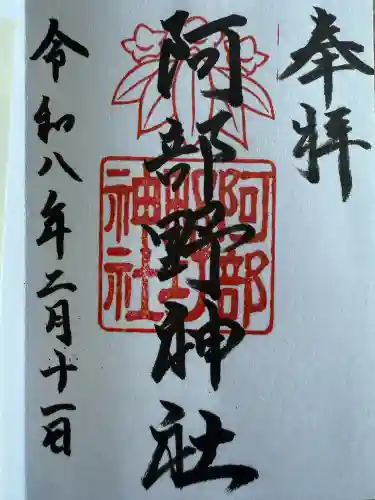 奉拝
阿部野神社
令和八年二月十一日
阿部
野印
神社